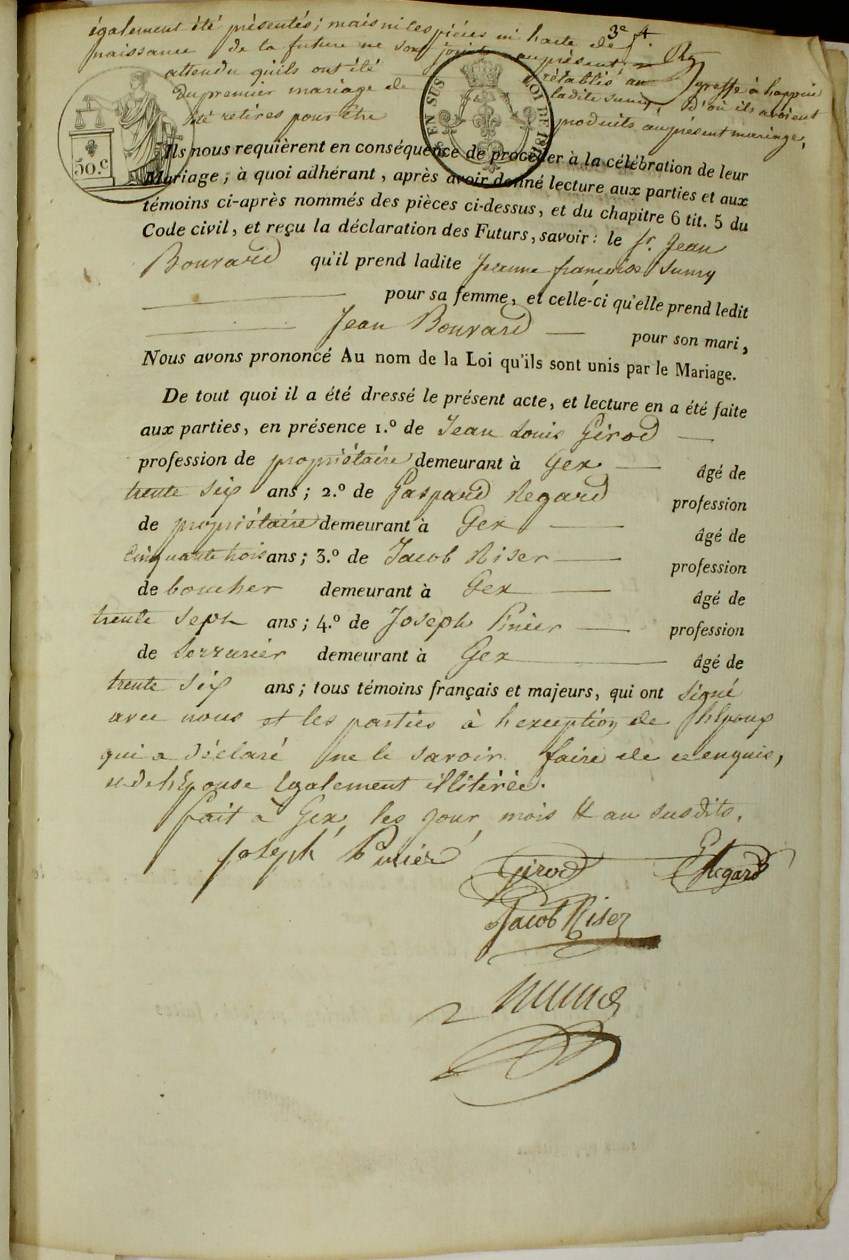 3e f.t
également été présentés; mais ni les pièces ni l'acte de
naissance de la future ne sont joints au présent
attendu qu'ils ont été rétablis au greffe à l'appui
du premier mariage de ladite Sumy D'où ils avoient
été retirés pour être produits au présent mariage,
50.c
EN SUS
LOI DE 181
Ils nous requièrent en conséquence de procéder à la célébration de leur
Mariage; à quoi adhérant, après avoir donné lecture aux parties et aux
témoins ci-après nommés des pièces ci-dessus, et du chapitre 6 tit. 5 du
Code civil, et reçu la déclaration des Futurs, savoir: le Sr. Jean
Bouvard qu'il prend ladite Jeanne françoise Sumy
pour sa femme, et celle-ci qu'elle prend ledit
Jean Bouvard pour son mari,
Nous avons prononcé Au nom de la Loi qu'ils sont unis par le Mariage.
De tout quoi il a été dressé le présent acte, et lecture en a été faite
aux parties, en présence 1.º de Jean Louis Girod
profession de propriétaire demeurant à Gex âgé de
trente six ans; 2.º de Gaspard Regard profession
de propriétaire demeurant à Gex âgé de
cinquante trois ans; 3.º de Jacob Riser profession
de boucher demeurant à Gex âgé de
trente sept ans; 4.º de Joseph profession
de Serrurier demeurant à Gex âgé de
trente six ans; tous témoins français et majeurs, qui ont signé
avec nous et les parties à l'exception de l'Epoux
qui a déclaré ne le savoir faire de ce enquis,
et de l'Epouse Egalement illitérée.
fait à Gex, les jour, mois & an susdits.
Joseph Girod Regard
Jacob Riser